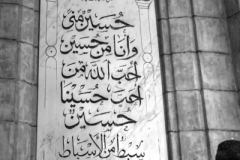 حسين مني
وأنا من حسين
أحب الله من
أحب حسينا
حسين
سبط من الأسباط